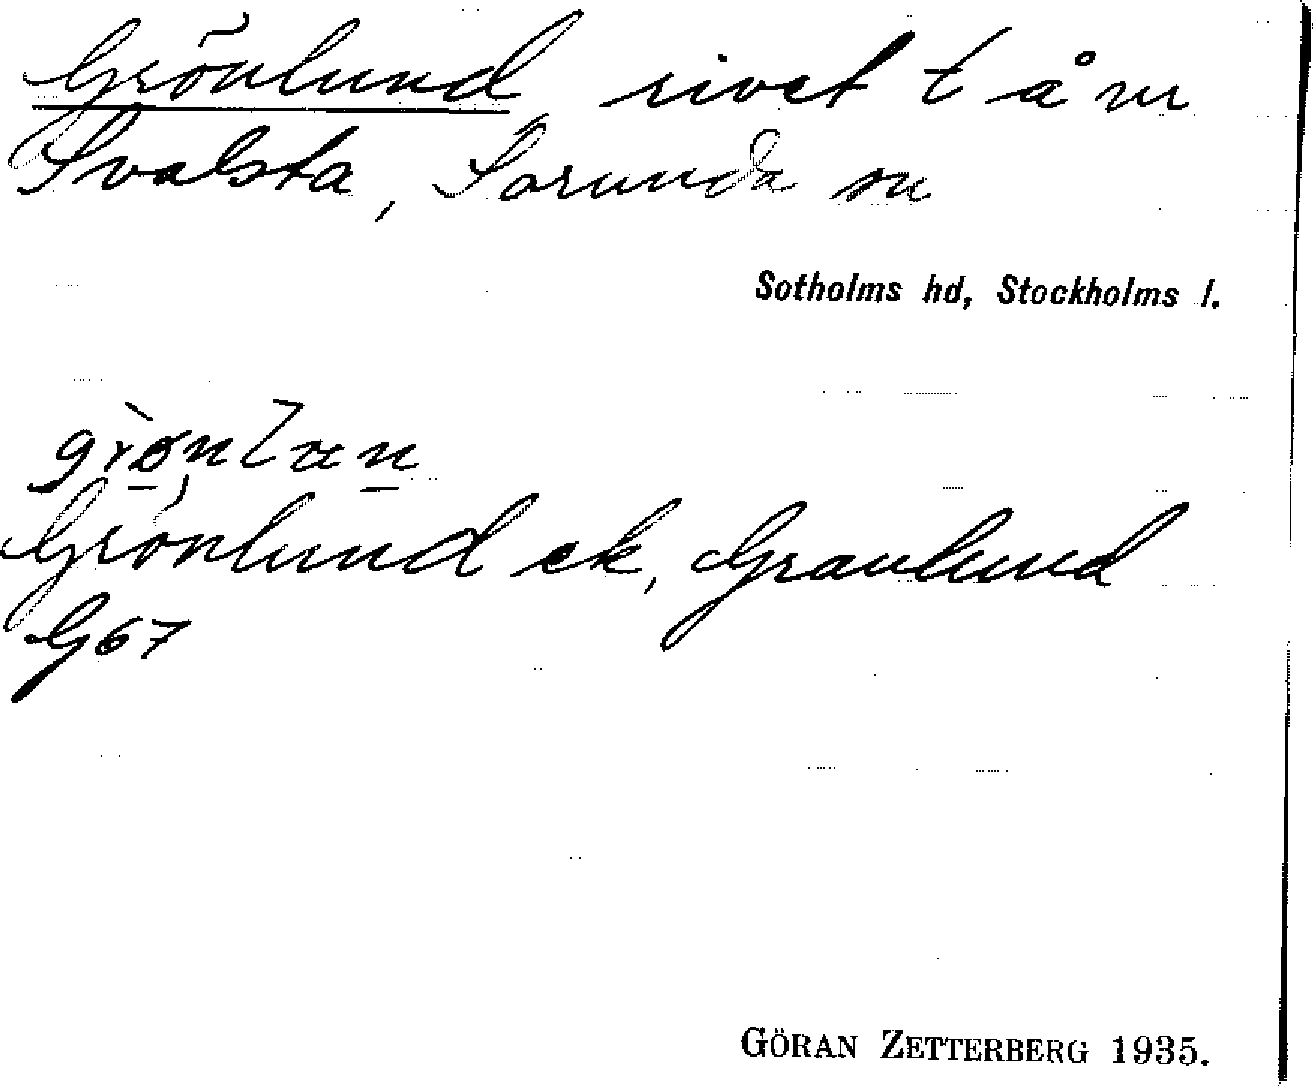 Grönlund, rivet t å m
Svalsta, Sorunda sn
Sotholms hd, Stockholms l.
Grönlund ek, Granlund
G67
GÖRAN ZETTERBERG 1935.